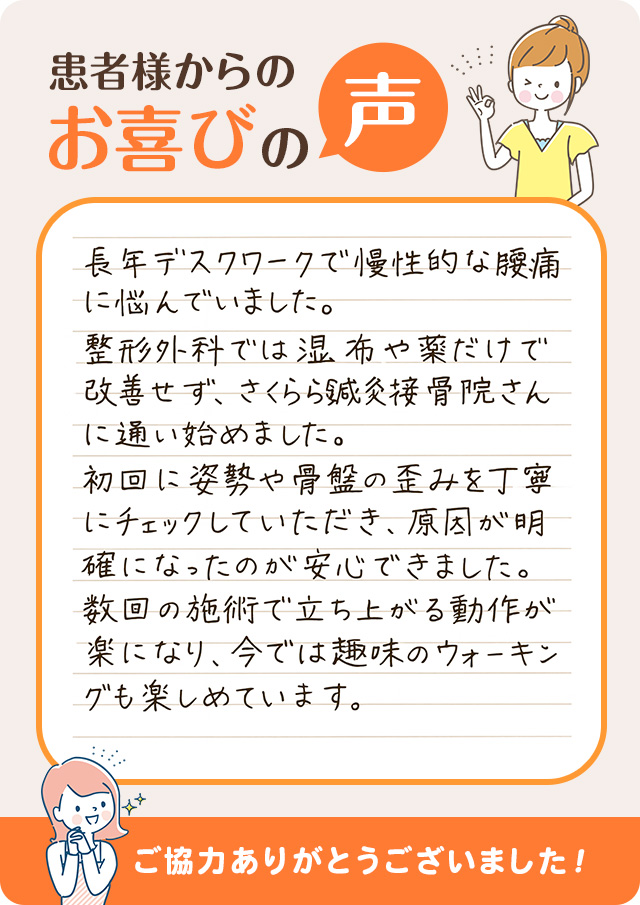 患者様からの
お喜びの声
長年デスクワークで慢性的な腰痛
に悩んでいました。
整形外科では湿布や薬だけで
改善せず、さくらら鍼灸接骨院さん
に通い始めました。
初回に姿勢や骨盤の歪みを丁寧
にチェックしていただき、原因が明
確になったのが安心できました。
数回の施術で立ち上がる動作が
楽になり、今では趣味のウォーキン
グも楽しめています。
ご協力ありがとうございました!